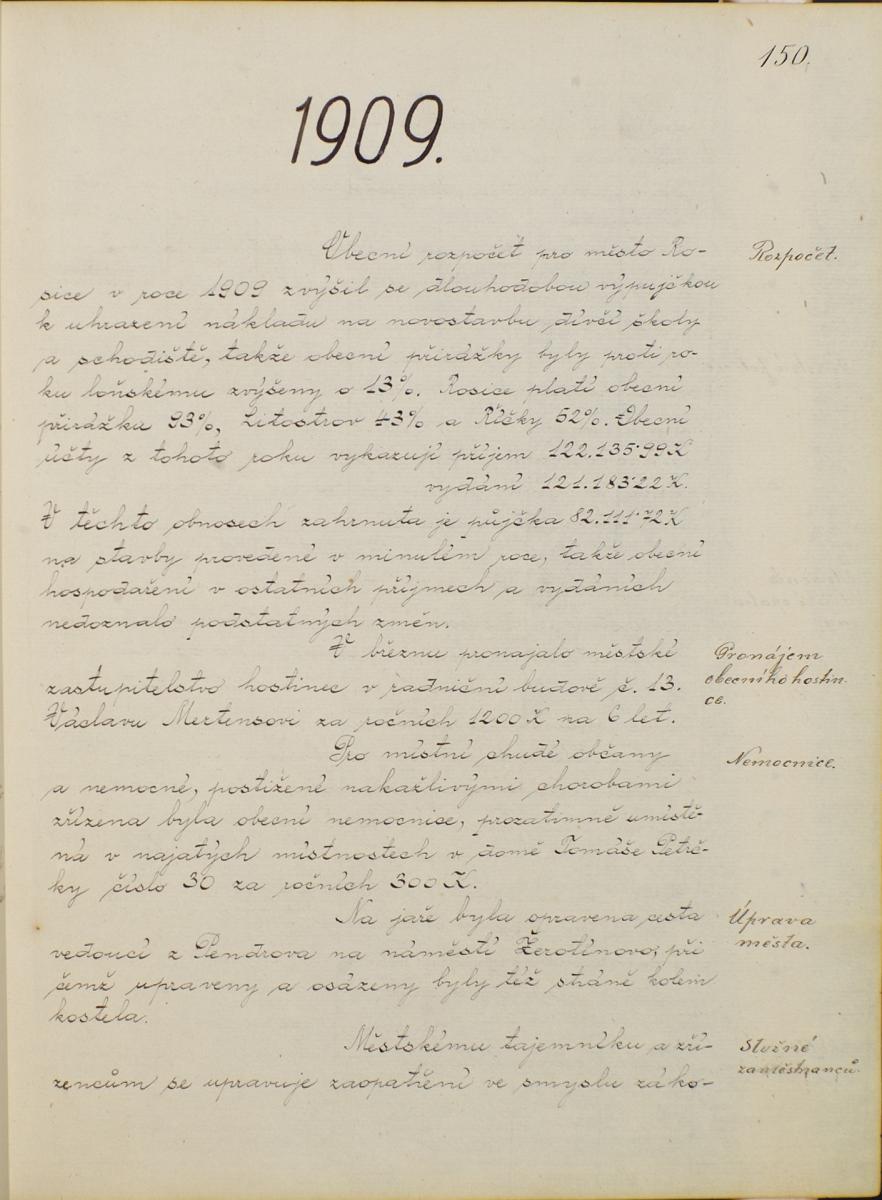 150.
1909.
Obecní rozpočet pro město Ro-
Rozpočet.
sice v roce 1909 zvýšil se dlouhodobou výpujčkou
k uhrazení nákladu na novostavbu dívčí školy
a schodiště, takže obecní přirážky byly proti ro-
ku loňskému zvýšeny o 13%. Rosice platí obecní
přirážku 93%, Litostrov 43% a Říčky 52%. Obecní
účty z tohoto roku vykazují příjem 122.135·99 K
vydání 121.183·22 K.
V těchto obnosech zahrnuta je půjčka 82.111·72 K
na stavby provedené v minulém roce, takže obecní
hospodaření v ostatních příjmech a vydáních
nedoznalo podstatných změn.
V březnu pronajalo městské
Pronájem
obecního hostin-
ce.
zastupitelstvo hostinec v radniční budově č. 13.
Václavu Mertensovi za ročních 1200 K na 6 let.
Pro místní chudé občany
Nemocnice.
a nemocné, postižené nakažlivými chorobami
zřízena byla obecní nemocnice, prozatímně umístě-
ná v najatých místnostech v domě Tomáše Petrž-
ky číslo 30 za ročních 300 K.
Na jaře byla opravena cesta
Úprava
města.
vedoucí z Pendrova na náměstí Žerotínovo; při
čemž upraveny a osázeny byly též stráně kolem
kostela.
Městskému tajemníku a zří-
Služné
zaměstnanců.
zencům se upravuje zaopatření ve smyslu záko-